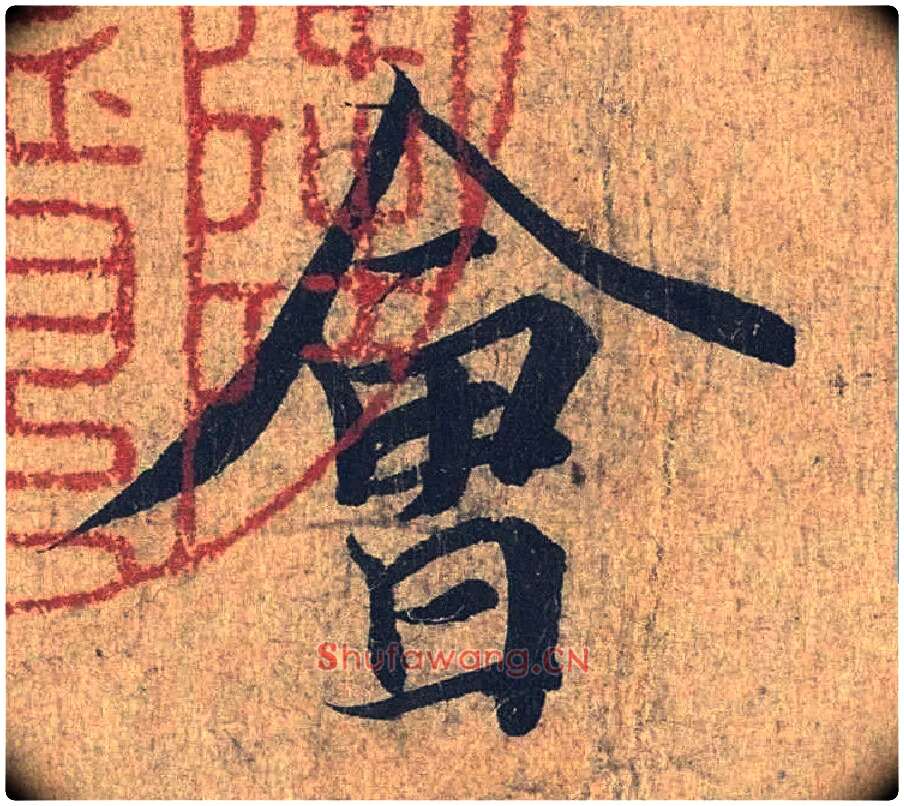 會
Shufawang.CN